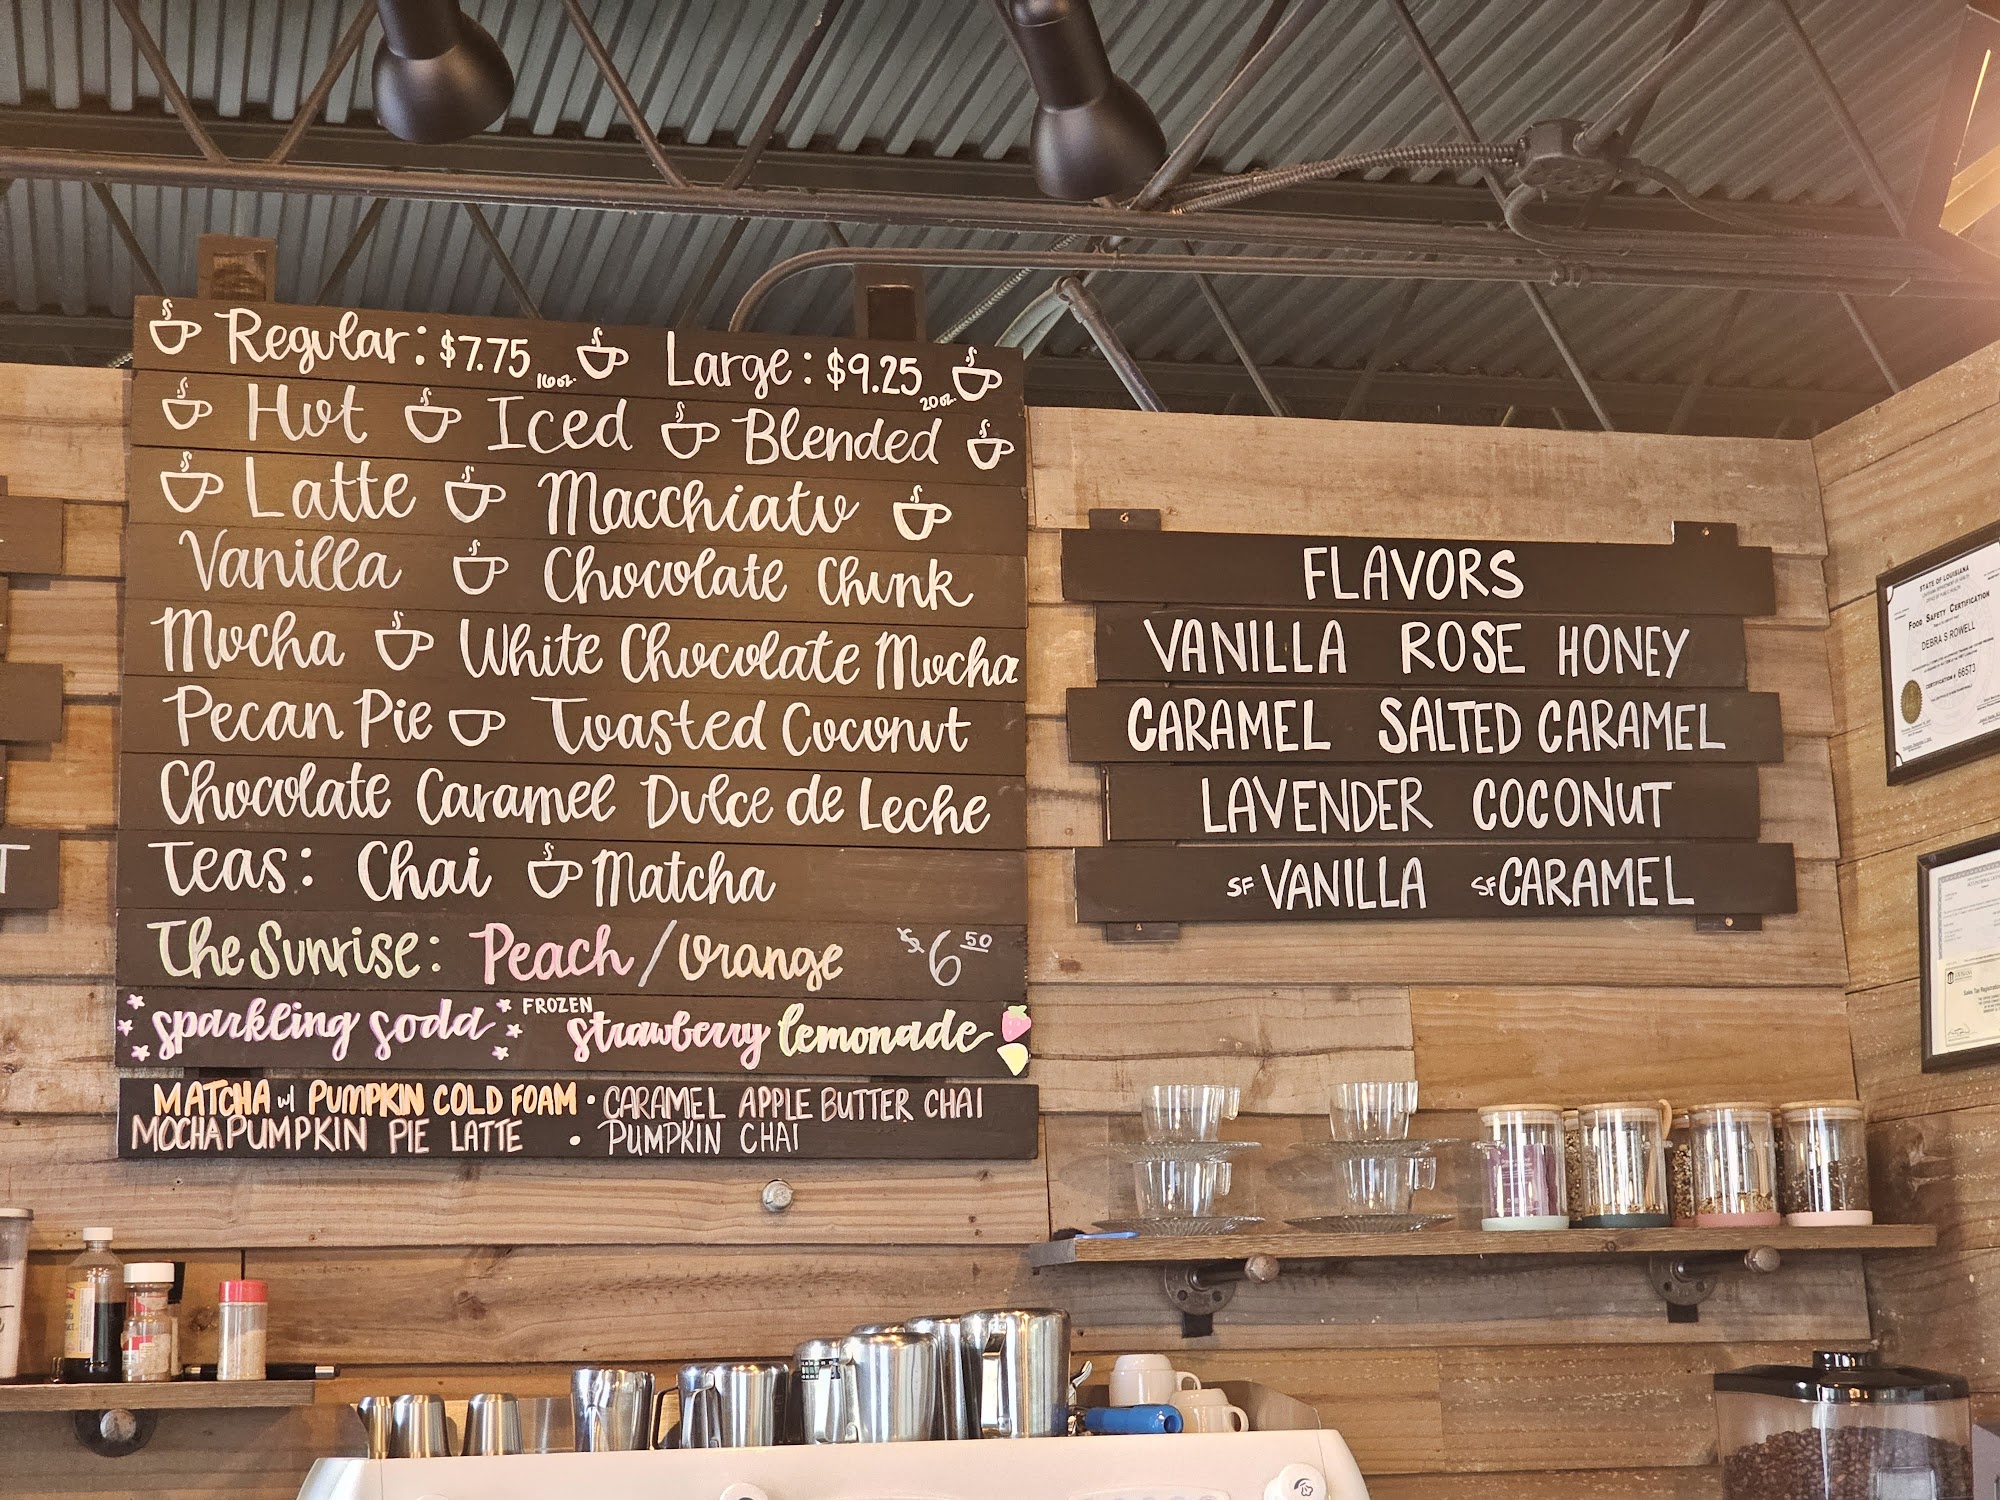 Regular: $7.75 16oz. Large: $9.25 20oz.
Hot Iced Blended
Latte Macchiato
Vanilla Chocolate Chunk
Mocha White Chocolate Mocha
Pecan Pie Toasted Coconut
Chocolate Caramel Dulce de Leche
Teas: Chai Matcha
The Sunrise: Peach / Orange $6 50
sparkling soda FROZEN strawberry lemonade
MATCHA w/ PUMPKIN COLD FOAM • CARAMEL APPLE BUTTER CHAI
MOCHA PUMPKIN PIE LATTE • PUMPKIN CHAI
FLAVORS
VANILLA ROSE HONEY
CARAMEL SALTED CARAMEL
LAVENDER COCONUT
SF VANILLA SF CARAMEL
T
STATE OF LOUISIANA
FOOD SAFETY CERTIFICATION
DEBRA S ROWELL
CERTIFICATION # 66573